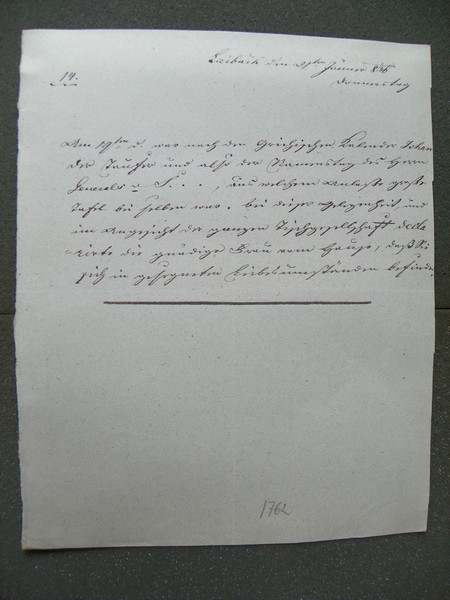 Laibach den 29ten Jänner 846
Donnerstag
14.
Am 19ten d. war nach dem Griechischen Kalender Johan
der Taufer und also der Namenstag des Herrn
Generals v. F. . . , aus welchem Anlaße große
Tafel bei selben war. bei dieser Gelegenheit und
im Angesicht der ganzen Tischgesellschaft decla
rirte die gnädige Frau vom Hause, daß Sie
sich in gesegneten Leibesumständen befinde.
1762